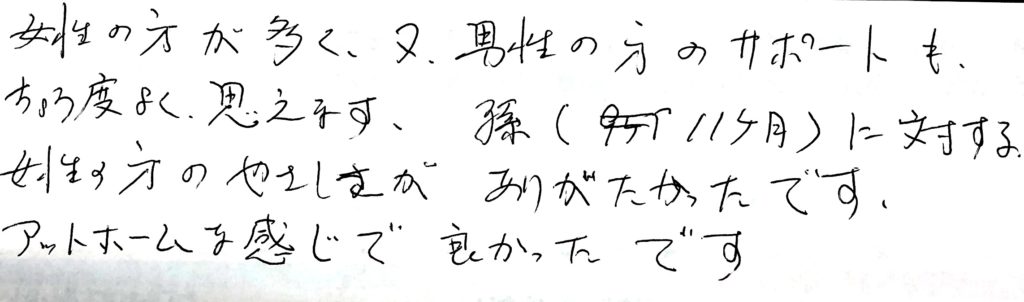 女性の方が多く、又、男性の方のサポートも、
ちょう度よく、思えます、 孫(11ヶ月)に対する
女性の方のやさしさが ありがたかったです、
アットホームな感じで 良かったです